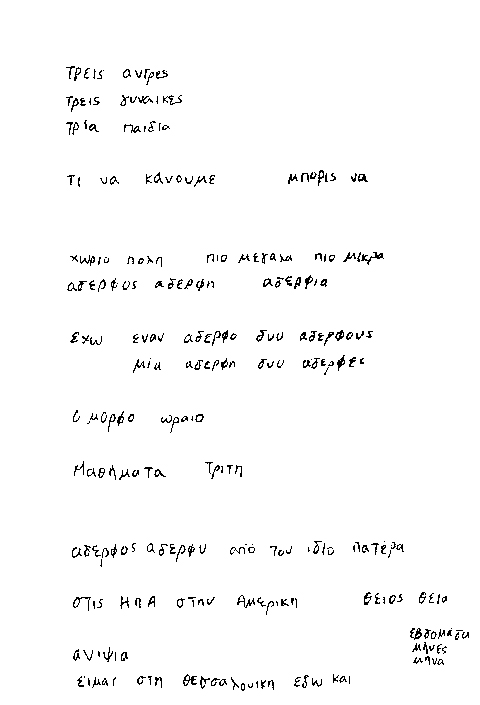 τρεις αντρες
τρεις γυναικες
τρία παιδια
Τι να κάνουμε μπορις να
χωριο πολη πιο μεγαλα πιο μικρα
αδερφος αδερφη αδερφια
εχω εναν αδερφο δυο αδερφους
μία αδερφη δυο αδερφες
ομορφο ωραιο
Μαθήματα Τριτη
αδερφος αδερφυ από τον ιδιο πατέρα
στις ΗΠΑ στην Αμερικη θειος θεια
εβδομάδα
μήνες
ανιψια μηνα
ειμαι στη θεσσαλονικη εδω και